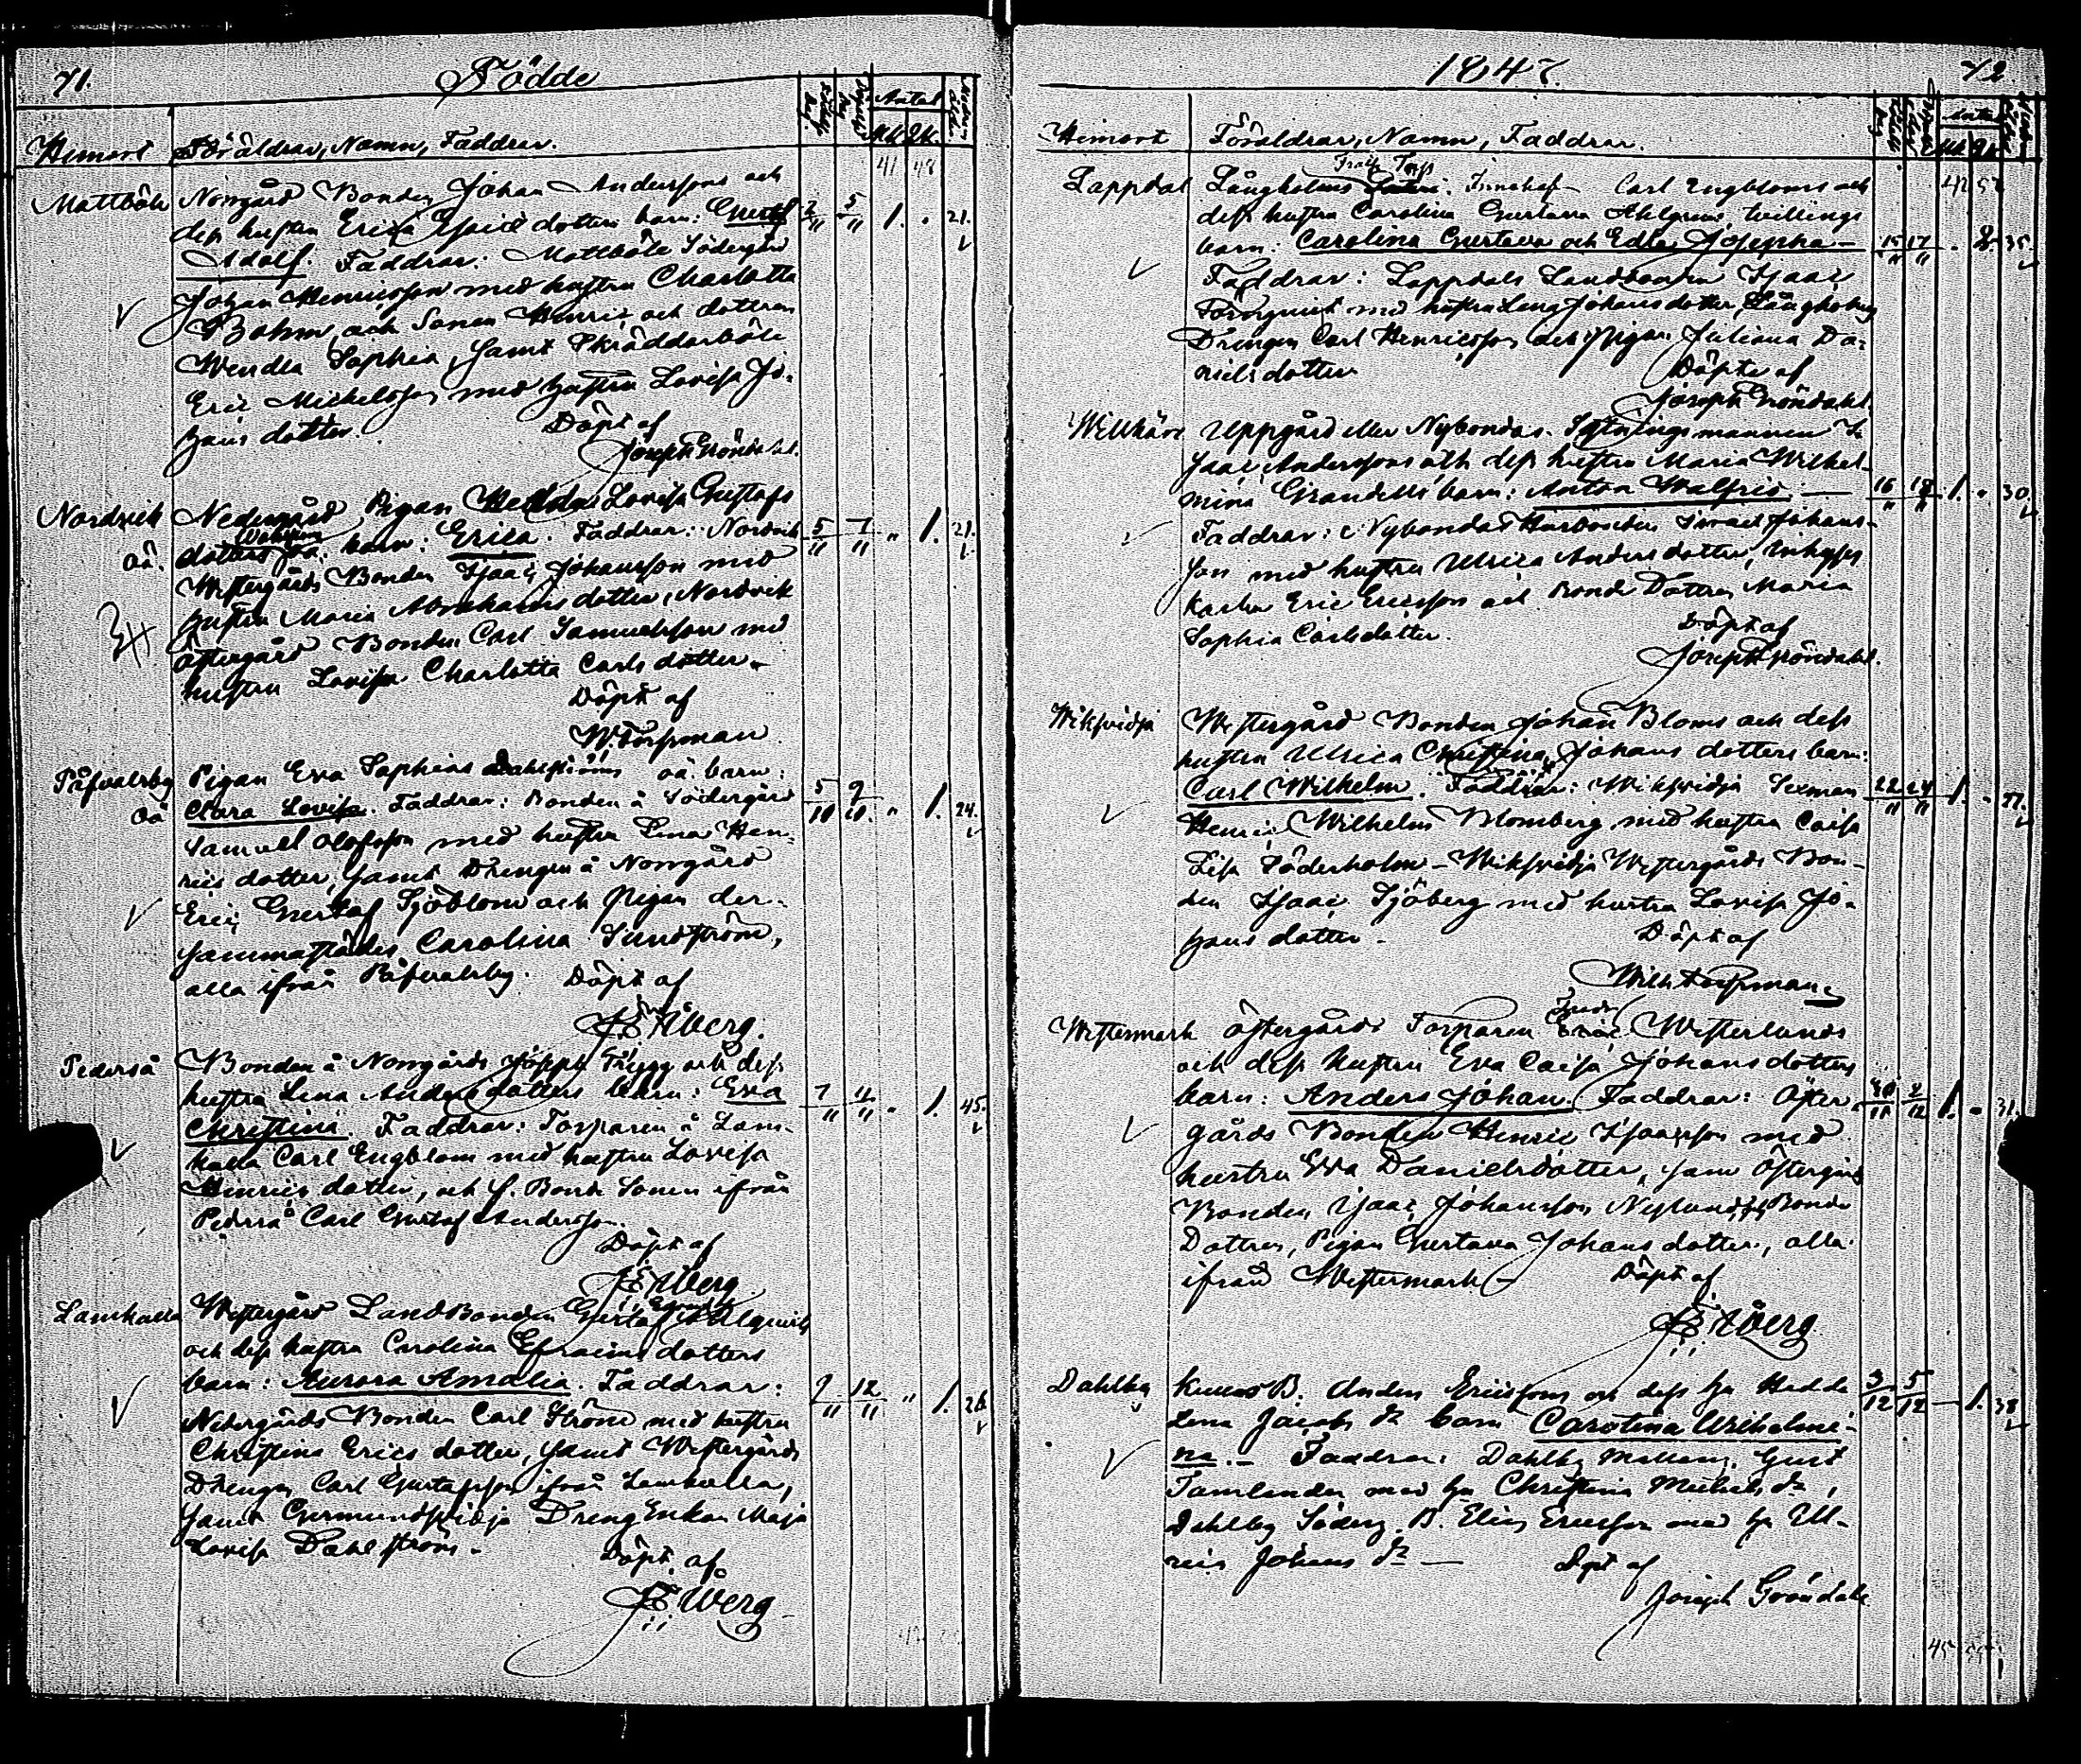 71.
Födde
Antal
Mk. Qk.
Hemort Föräldrar, Namn, Faddrar.
41 48
Mattböle Norrgård Bonden Johan Anderssons och
dess hustru Erica dotters barn: Gustaf 2/11 5/11 1. " 21.
Adolf. Faddrar: Mattböle Södergård
Johan Henricsson med hustru Charlotta
Bohm, och Sonen Henric och dottren
Wendla Sophia, samt Skräddarböle
Eric Michelsson med hustru Lovisa Jo-
hans dotter. Döpt af
Joseph Gröndahl.
Nordvik Nedergård Pigan Hedda Lovisa Gustafs
oä. dotters oä. barn: Erica. Faddrar: Nordvik 5/11 7/11 " 1. 21.
Westergårds Bonden Isaac Johansson med
hustru Maria Abrahams dotter, Nordvik
Östergård Bonden Carl Samuelsson med
hustru Lovisa Charlotta Carls dotter.
Döpt af
W. Forsman
Påfvalsby Pigan Eva Sophias Dahlströms oä. barn:
oä Clara Lovisa. Faddrar: Bonden å Södergård 5/10 9/10 " 1. 24.
Samuel Olofsson med hustru Lena Hen-
rics dotter, samt Drengen å Norrgård
Eric Gustaf Sjöblom och Pigan der-
sammastädes Carolina Sundström,
alla ifrån Påfvalsby. Döpt af
Åberg.
Pederså Bonden å Norrgårds Trygg och dess
hustru Lena Anders dotters barn: Eva 7/11 11/11 " 1. 45.
Christina. Faddrar: Torparen å Lam-
kalla Carl Engblom med hustru Lovisa
Henrics dotter, och Bonde Sonen ifrån
Pederså Carl Gustaf Andersson.
Döpt af
Åberg
Lamkalla Westergård LandBonden Gustaf Ahlqvists
och dess hustru Carolina Efraims dotters
barn: Aurora Amalia. Faddrar: 9/11 12/11 " 1. 26
Nedergårds Bonden Carl Ström med hustru
Christina Erics dotter, samt Westergårds
Drengen Carl Gustafsson ifrån Lamkalla,
samt Germundsvidja Dreng Enkan Maja
Lovisa Dahlström. Döpt af
Åberg
1847. 72.
Antal
Mk. Qk.
Hemort Föräldrar, Namn, Faddrar.
42 52
Lappdal Långholms Carl Engbloms och
dess hustru Carolina Gustava Ahlgrens tvillings
barn: Carolina Gustava och Edla Josepha 15/11 17/11 . 2. 35.
Faddrar: Lappdals Landbonden Isaac
Törnqvist med hustru Lena Johans dotter, Långholms
Drengen Carl Henricsson och Pigan Juliana Da-
niels dotter Döpte af
Joseph Gröndahl.
Willkärr Uppgård eller Nybondas. Sytningsmannen
Isaac Anderssons och dess hustru Maria Wilhel-
mina Grandells barn: Anton Walfrid 16/11 18/11 1. " 30.
Faddrar: Nybondas Husbonden Israel Johans-
son med hustru Ulrica Anders dotter, Inhyses
Karlen Eric Ericsson och Bonde Dottren Maria
Sophia Carlsdotter. Döpt af
Joseph Gröndahl.
Wiksvidja Westergård Bonden Johan Bloms och dess
hustru Ulrica Christina Johans dotters barn:
Carl Wilhelm. Faddrar: Wiksvidja Sexman 22/11 24/11 1. -
Henric Wilhelm Blomberg med hustru Caisa
Lisa Söderholm - Wiksvidja Westergårds Bon-
den Isaac Sjöberg med hustru Lovisa Jo-
hans dotter. Döpt af
Wilh Forsman.
Westermark Östergårds Torparen Westerlunds
och dess hustru Eva Caisa Johans dotters
barn: Anders Johan. Faddrar: Öster 2/12 1. -
gårds Bonden Henric Isaacsson med
hustru Eva Danielsdotter, samt Östergårds
Bonden Isaac Johansson Nyslund, Bonde
Dottren, Pigan Gustava Johans dotter, alla
ifrån Westermark Döpt af
Åberg
Dahlby B. Anders Ericssons och dess hu Hedda 3/12 5/12 - 1. 38
Lena Jacobs dr barn Carolina Wilhelmi-
na. - Faddrar: Dahlby Gust
Tamlander med hu Christina Michels dr,
Dahlby Söderg. B. Elias Ericsson med hu Ul-
rica Johans dr — Döpt af
Joseph Gröndahl
45 55